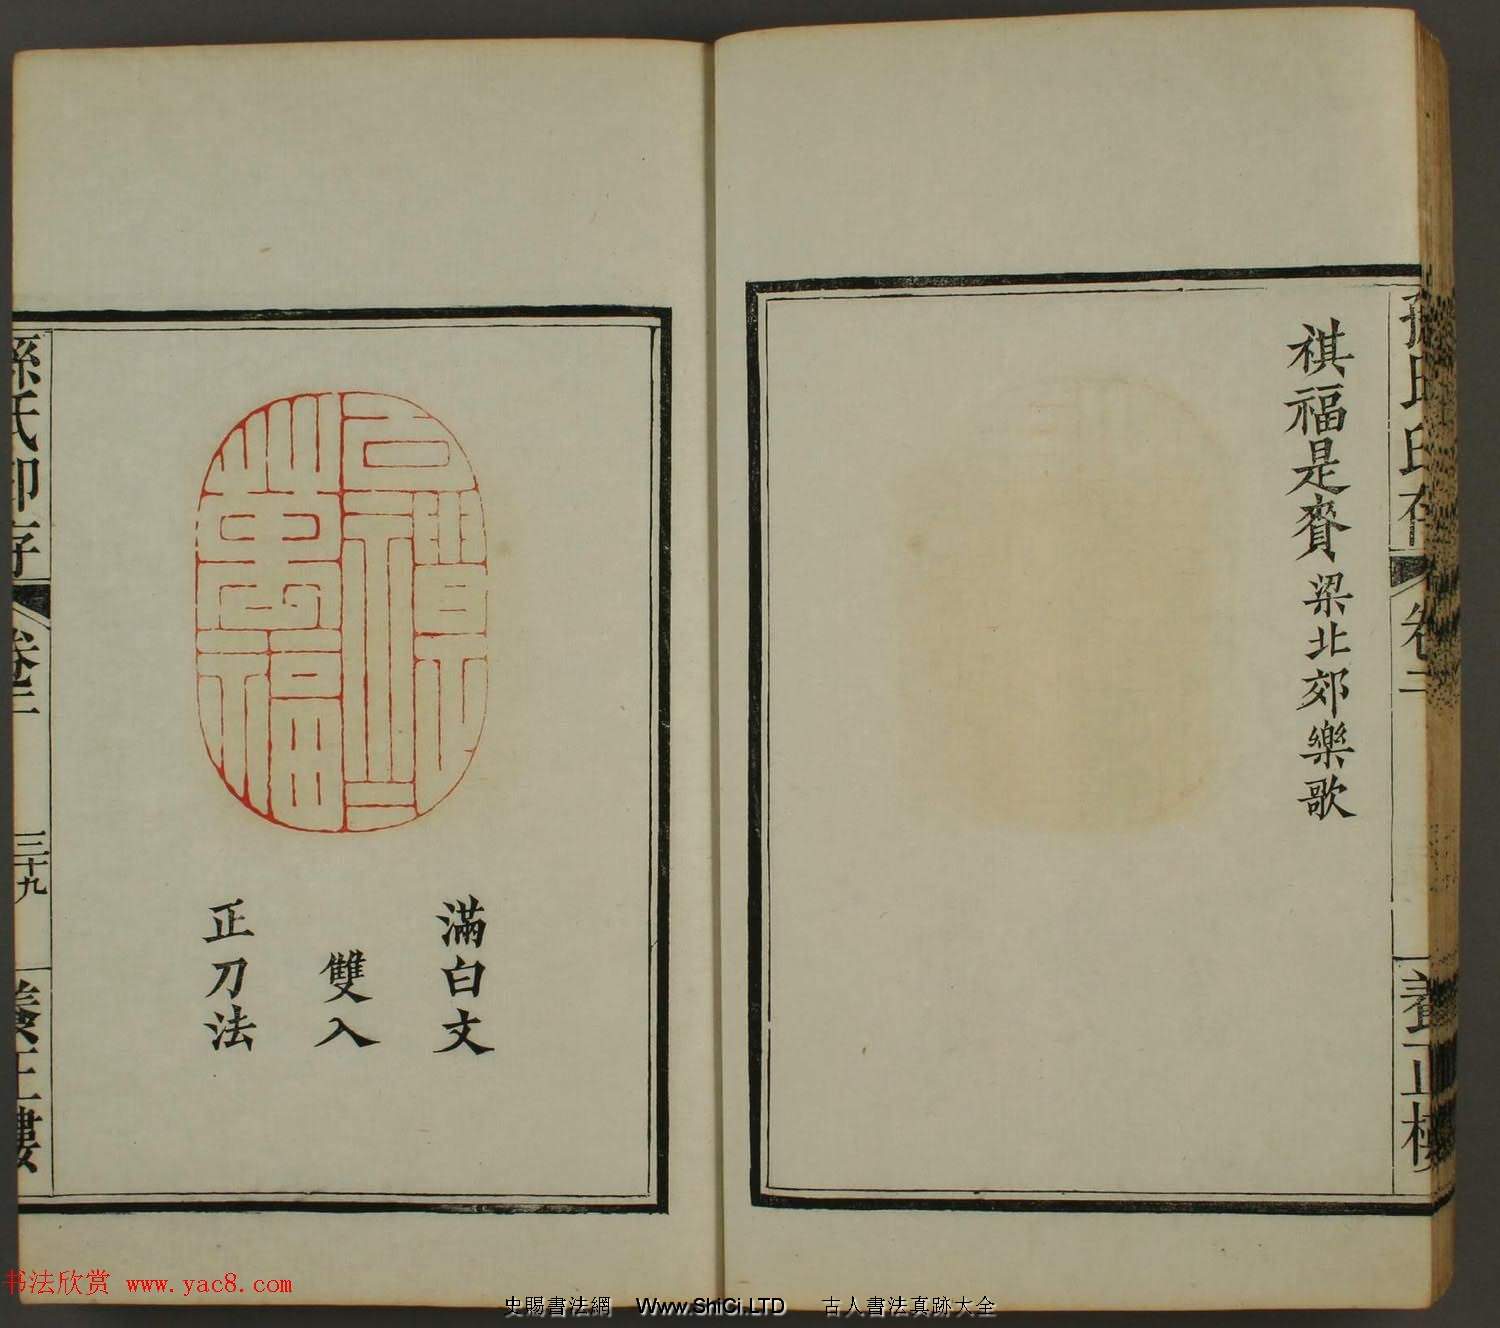 祺福是賚 梁北郊樂歌
孫氏印存
卷二
養正樓
滿白文
雙入
正刀法
孫氏印存
卷二
三十九
養正樓
书法欣赏 www.yac8.com
史賜書法網 Www.ShiCi.LTD 古人書法真跡大全